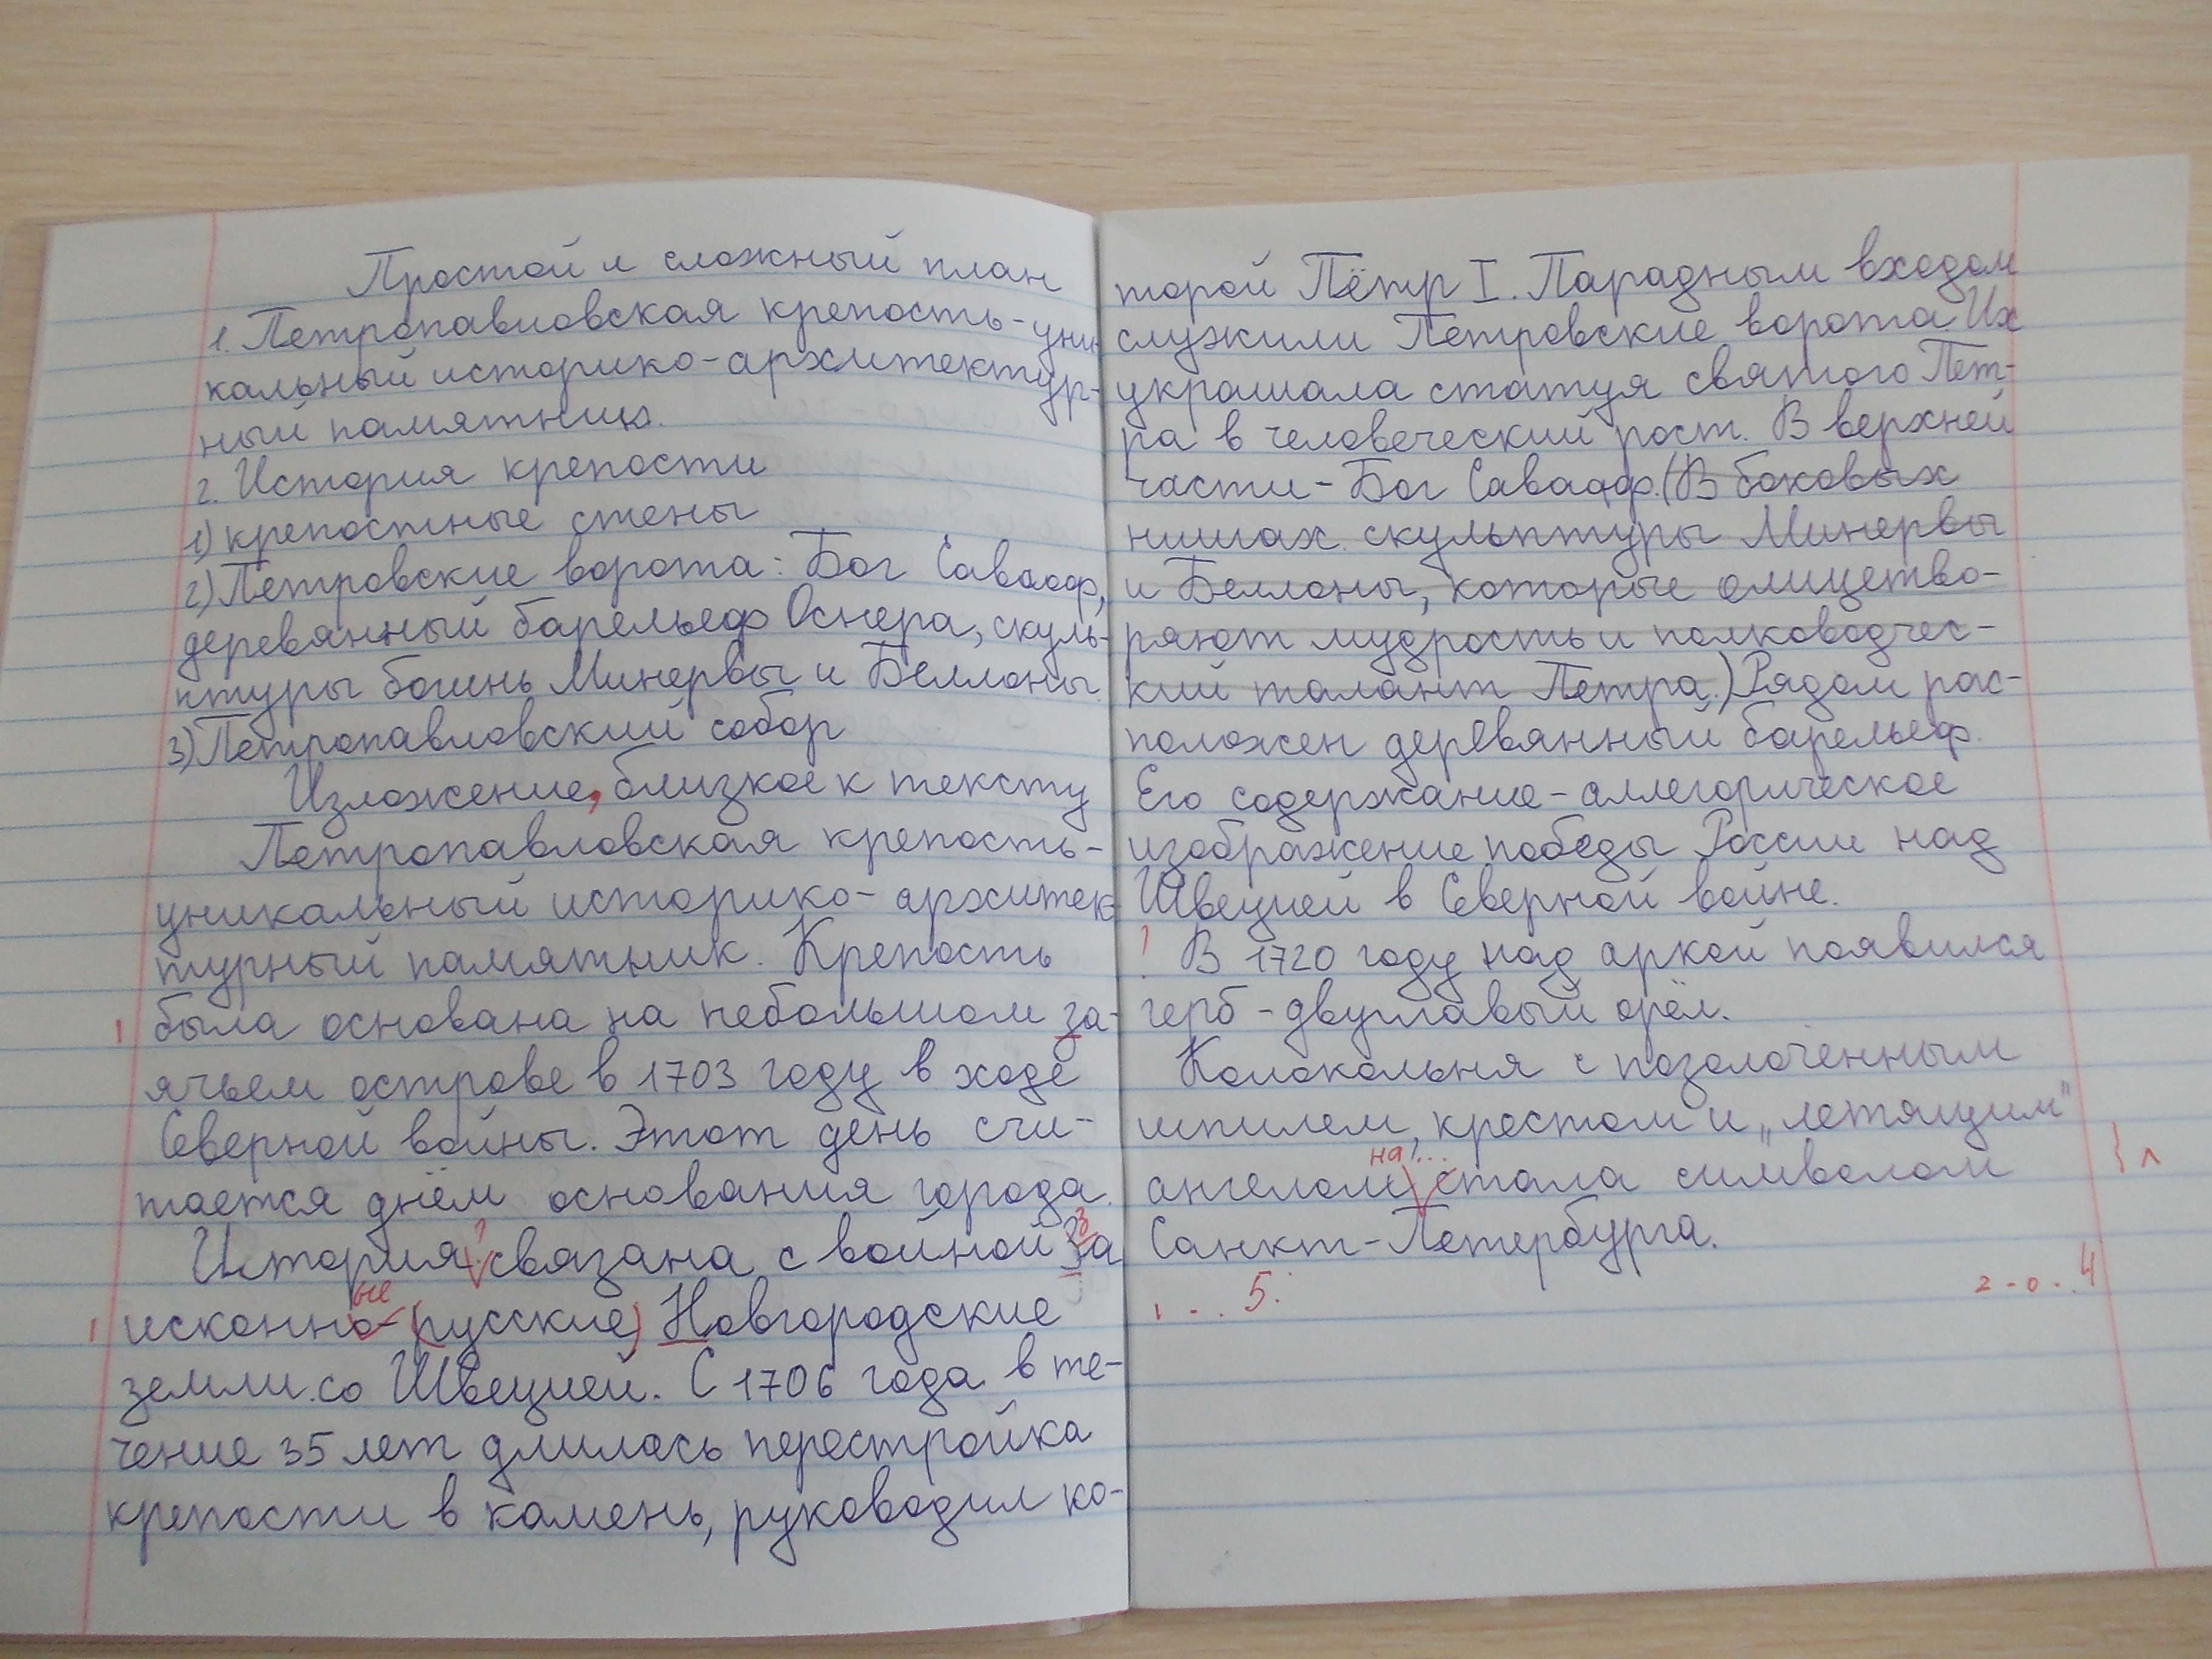 Простой и сложный план
1. Петропавловская крепость - уни-
кальный историко-архитектур-
ный памятник.
2. История крепости
1) крепостные стены
2) Петровские ворота: Бог Саваоф,
деревянный барельеф Оснера, скуль-
птуры богинь Минервы и Беллоны
3) Петропавловский собор
Изложение, близкое к тексту
Петропавловская крепость -
уникальный историко-архитек-
турный памятник. Крепость
была основана на небольшом за-
ячьем острове в 1703 году в ходе
Северной войны. Этот день счи-
тается днём основания города.
История связана с войной за
ые
исконно-(русские) Новгородские
земли со Швецией. С 1706 года в те-
чение 35 лет длилась перестройка
крепости в камень, руководил ко-
торой Пётр I. Парадным входом
служили Петровские ворота. Их
украшала статуя святого Пет-
ра в человеческий рост. В верхней
части - Бог Саваоф. (В боковых
нишах скульптуры Минервы
и Беллоны, которые олицетво-
ряют мудрость и полководчес-
кий талант Петра.) Рядом рас-
положен деревянный барельеф.
Его содержание - аллегорическое
изображение победы России над
Швецией в Северной войне.
! В 1720 году над аркой появился
герб - двуглавый орёл.
Колокольня с позолоченным
шпилем, крестом и „летящим"
на ...
ангелом стала символом
Санкт-Петербурга.
1 - .. 5.
2 - 0 .. 4